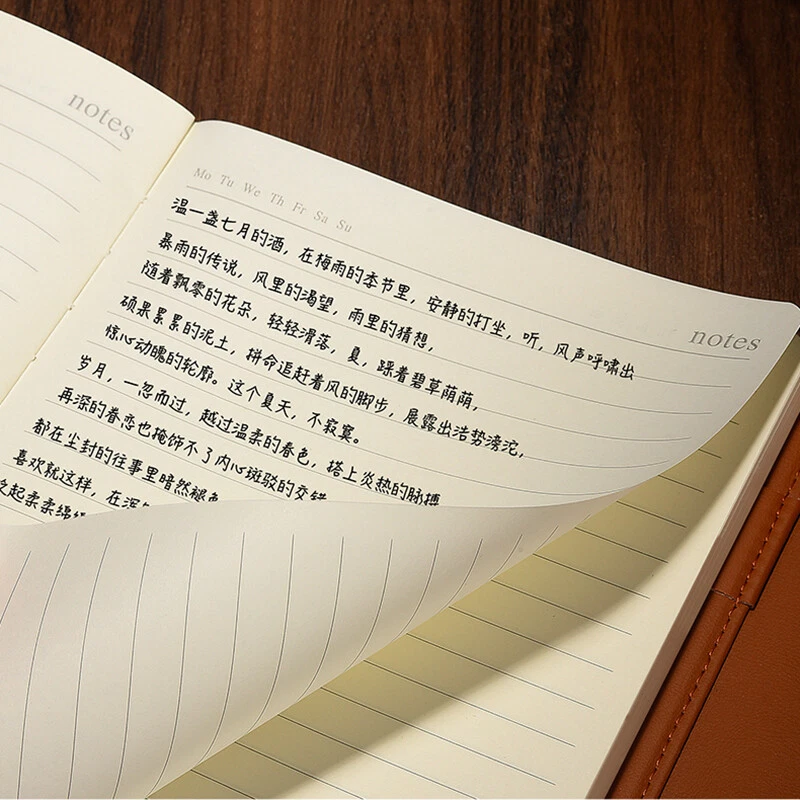 notes
Mo Tu We Th Fr Sa Su
notes
温一盏七月的酒，在梅雨的季节里，安静的打坐，听，风声呼啸出
暴雨的传说，风里的渴望，雨里的猜想，
随着飘零的花朵，轻轻滑落，夏，踩着碧草荫荫，
硕果累累的泥土，拼命追赶着风的脚步，展露出浩势滂沱，
惊心动魄的轮廓。这个夏天，不寂寞。
岁月，一忽而过，越过温柔的春色，搭上炎热的脉搏
再深的眷恋也掩饰不了内心斑驳的交错
都在尘封的往事里暗然褪色
喜欢就这样，在浑
起柔柔绵绵